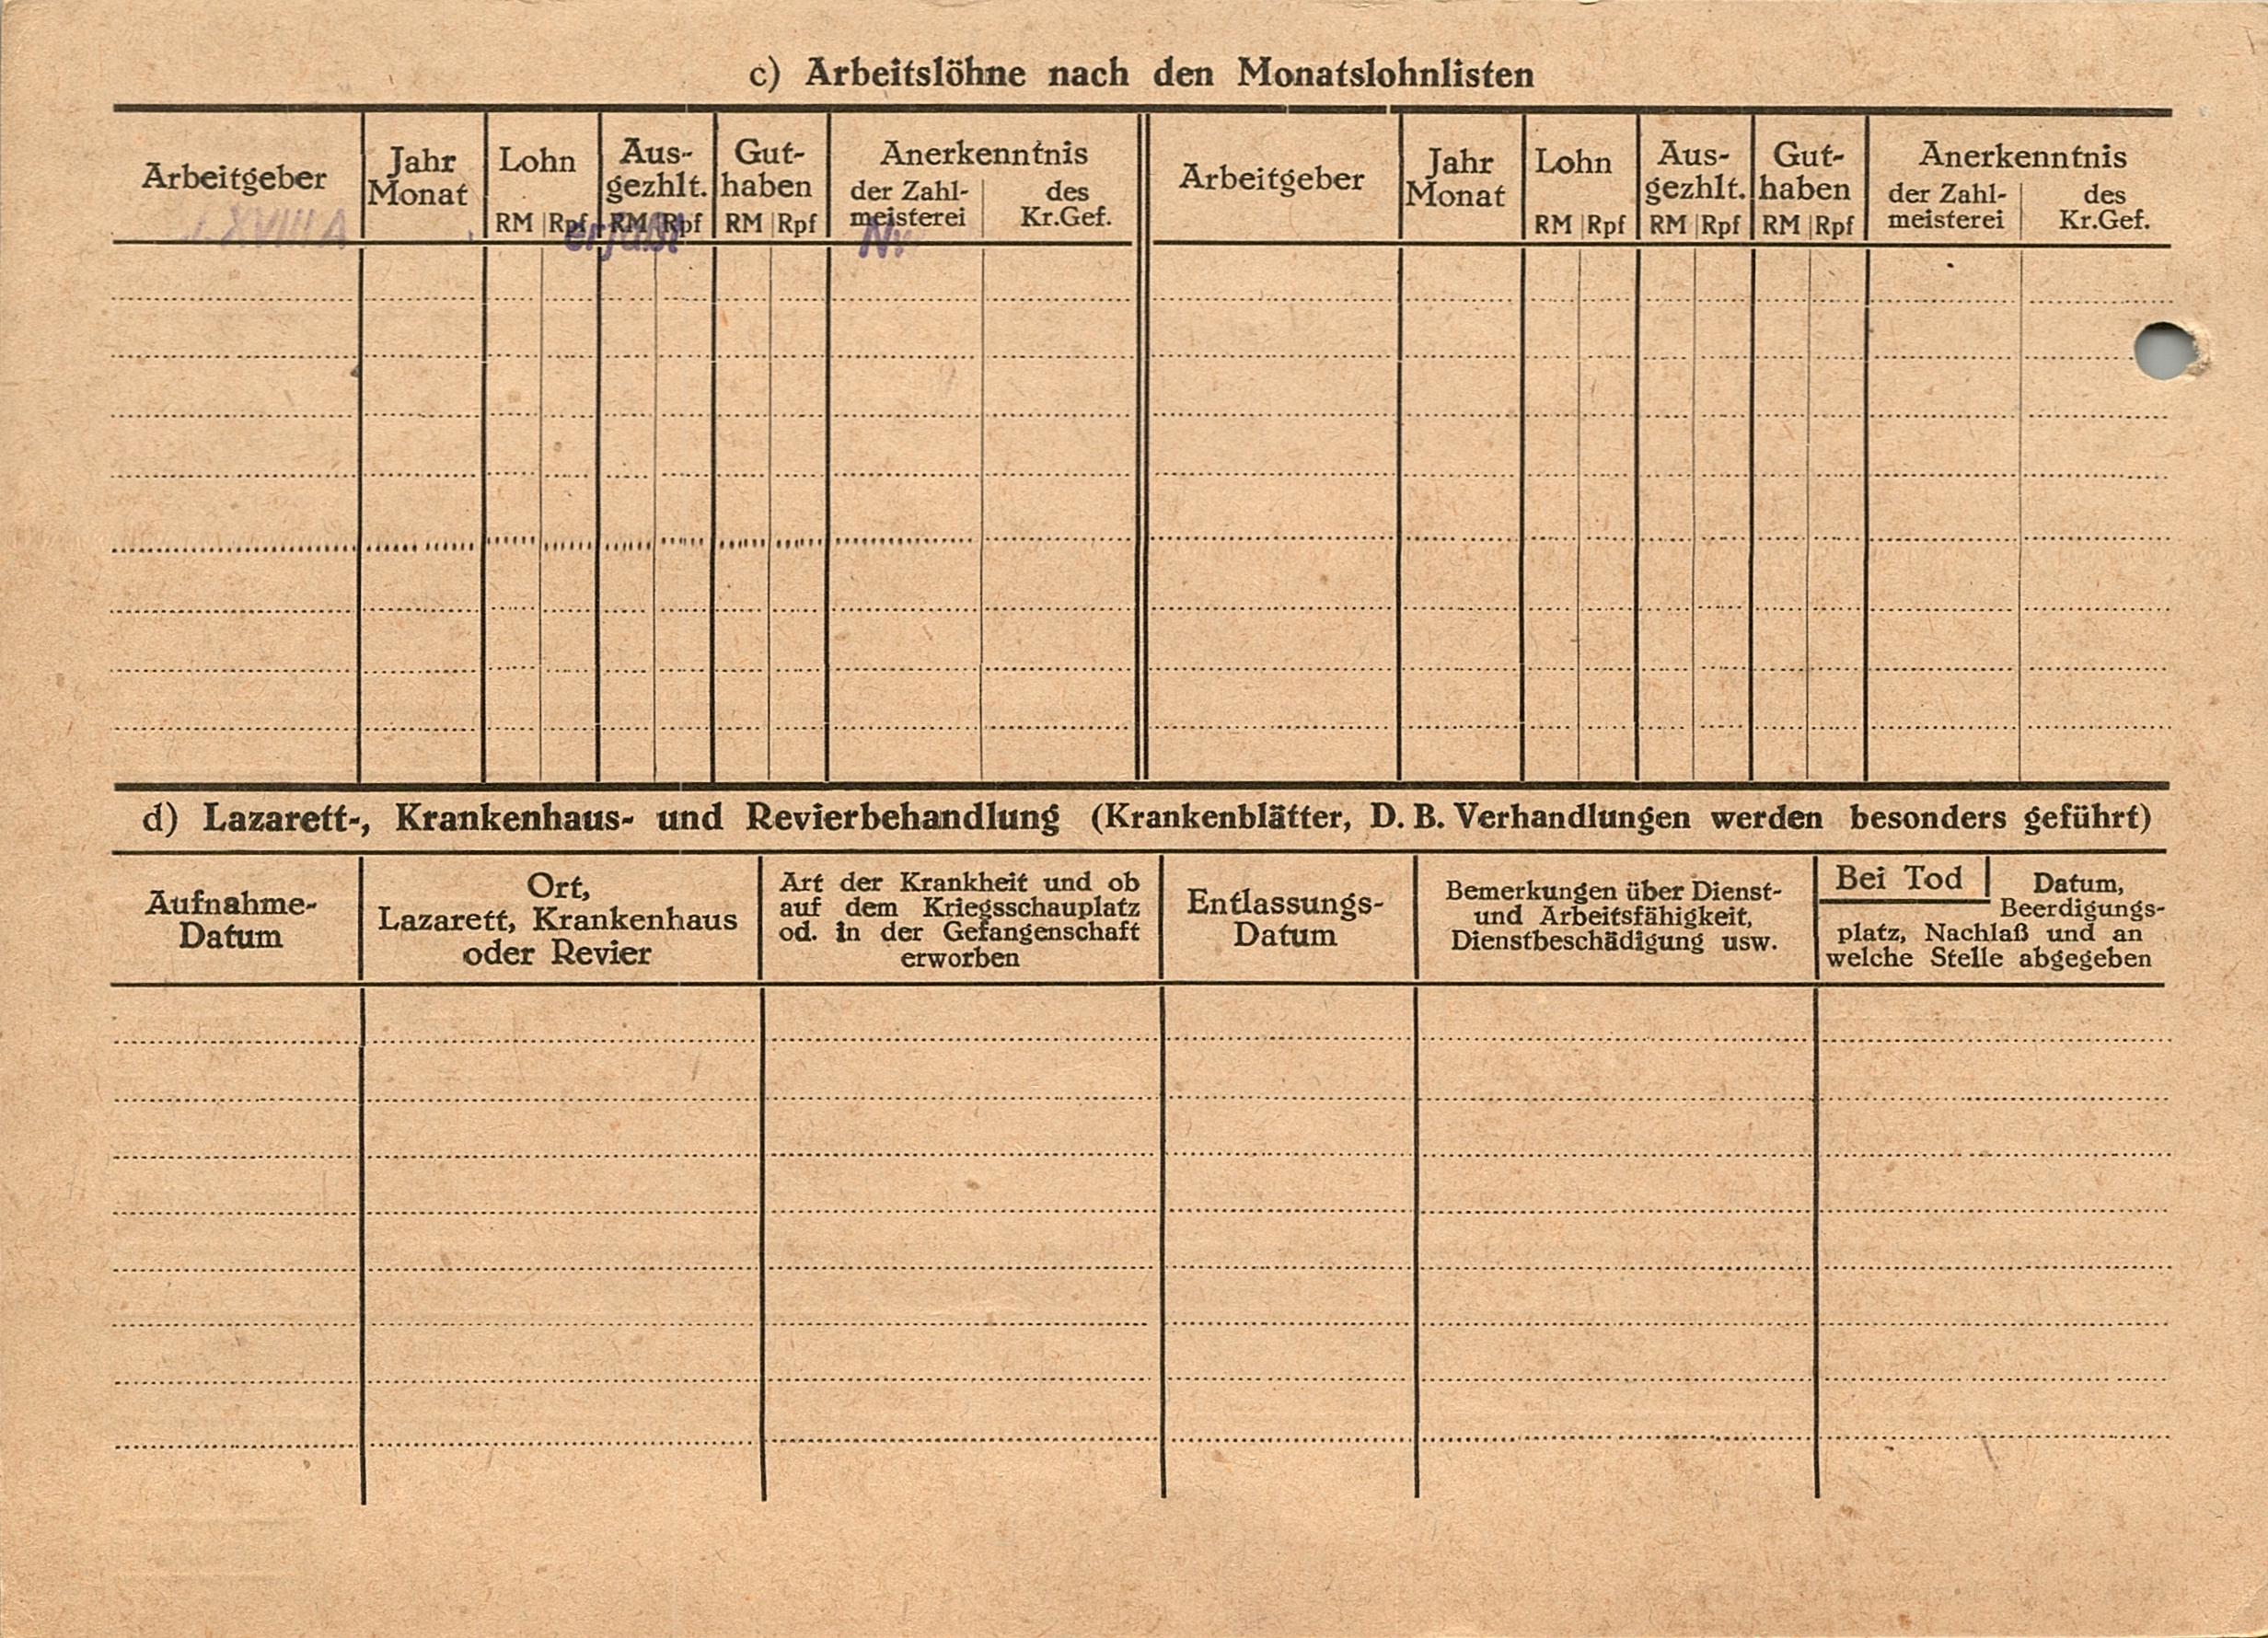 c) Arbeitslöhne nach den Monatslohnlisten
Arbeitgeber
Jahr
Monat
Lohn
RM Rpf
Aus-
gezhlt.
RM Rpf
Gut-
haben
RM Rpf
Anerkenntnis
der Zahl-
meisterei
des
Kr.Gef.
Arbeitgeber
Jahr
Monat
Lohn
RM Rpf
Aus-
gezhlt.
RM Rpf
Gut-
haben
RM Rpf
Anerkenntnis
der Zahl-
meisterei
des
Kr.Gef.
XVIII A erfaßt Nr.
d) Lazarett-, Krankenhaus- und Revierbehandlung (Krankenblätter, D. B. Verhandlungen werden besonders geführt)
Aufnahme-
Datum
Ort,
Lazarett, Krankenhaus
oder Revier
Art der Krankheit und ob
auf dem Kriegsschauplatz
od. in der Gefangenschaft
erworben
Entlassungs-
Datum
Bemerkungen über Dienst-
und Arbeitsfähigkeit,
Dienstbeschädigung usw.
Bei Tod
Datum,
Beerdigungs-
platz, Nachlaß und an
welche Stelle abgegeben